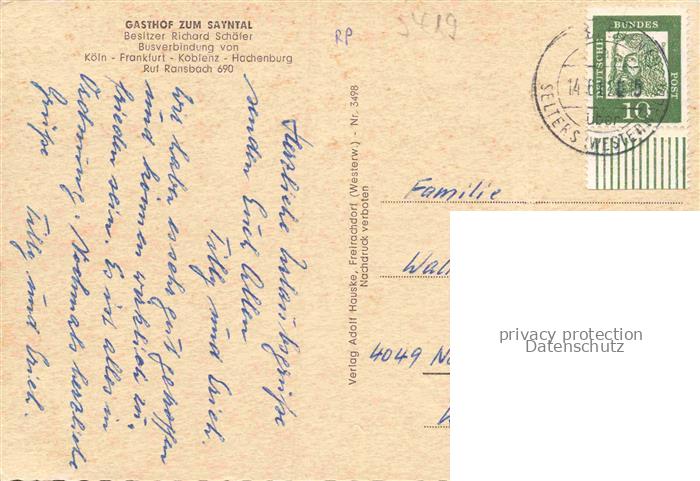 GASTHOF ZUM SAYNTAL
Besitzer Richard Schäfer
Busverbindung von
Köln - Frankfurt - Koblenz - Hachenburg
Ruf Ransbach 690
RP
5419
Herzliche Urlaubsgrüße
senden Euch Allen
Tilly und Erich.
Wir haben es sehr gut getroffen
und können wirklich zu-
frieden sein. Es ist alles in
Ordnung. Nochmals herzliche
Grüße
Tilly und Erich.
Verlag Adolf Hauske, Freirachdorf (Westerw.) - Nr. 3498
Nachdruck verboten
DEUTSCHE
BUNDES
POST
10
14.6.
über
SELTERS (WESTERW
Familie
Wal
4049 N
privacy protection
Datenschutz